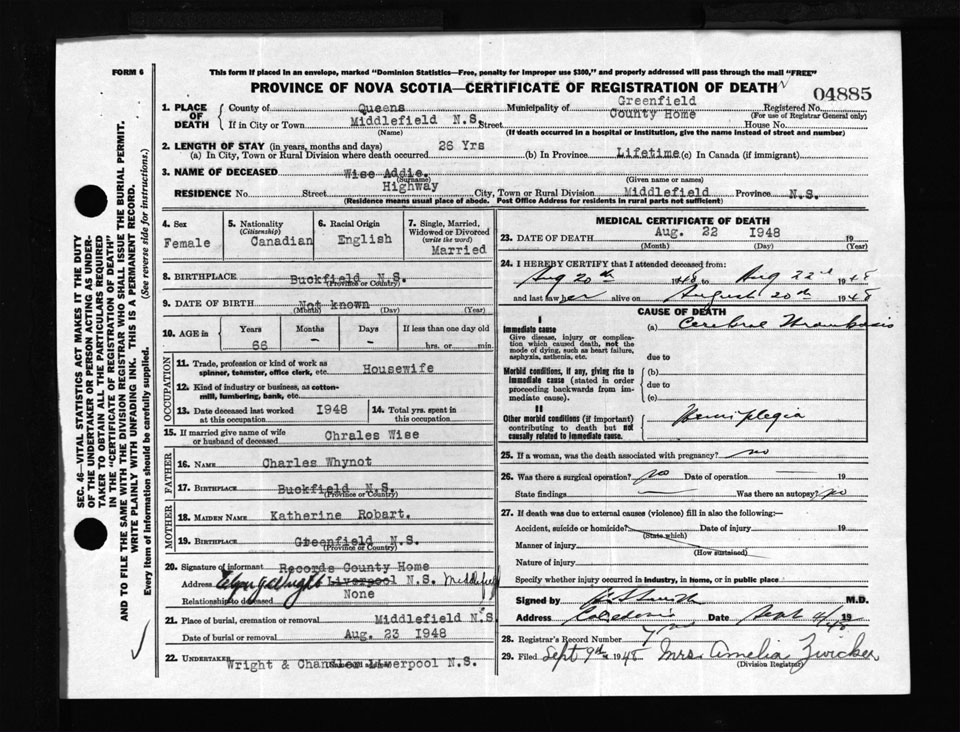 FORM 6
This form if placed in an envelope, marked "Dominion Statistics—Free, penalty for improper use $300," and properly addressed will pass through the mail "FREE"
PROVINCE OF NOVA SCOTIA—CERTIFICATE OF REGISTRATION OF DEATH
04885
1. PLACE OF DEATH
County of Queens Municipality of Greenfield Registered No.
(For use of Registrar General only)
If in City or Town Middlefield N.S. Street County Home House No.
(Name) (If death occurred in a hospital or institution, give the name instead of street and number)
2. LENGTH OF STAY (in years, months and days)
(a) In City, Town or Rural Division where death occurred 26 Yrs (b) In Province Lifetime (c) In Canada (if immigrant)
3. NAME OF DECEASED Wise Addie.
(Surname) (Given name or names)
RESIDENCE No. Street Highway City, Town or Rural Division Middlefield Province N.S.
(Residence means usual place of abode. Post Office Address for residents in rural parts not sufficient)
4. Sex
Female
5. Nationality
(Citizenship)
Canadian
6. Racial Origin
English
7. Single, Married, Widowed or Divorced
(write the word)
Married
8. BIRTHPLACE Buckfield N.S.
(Province or Country)
9. DATE OF BIRTH Not known
(Month) (Day) (Year)
10. AGE in Years Months Days If less than one day old
66 – – hrs. or min.
OCCUPATION
11. Trade, profession or kind of work as spinner, teamster, office clerk, etc. Housewife
12. Kind of industry or business, as cotton-mill, lumbering, bank, etc.
13. Date deceased last worked at this occupation 1948
14. Total yrs. spent in this occupation
15. If married give name of wife or husband of deceased Chrales Wise
FATHER
16. NAME Charles Whynot
17. BIRTHPLACE Buckfield N.S.
(Province or Country)
MOTHER
18. MAIDEN NAME Katherine Robart.
19. BIRTHPLACE Greenfield N.S.
(Province or Country)
20. Signature of informant Records County Home
Address Liverpool N.S. Middlefield
Relationship to deceased None
21. Place of burial, cremation or removal Middlefield N.S.
Date of burial or removal Aug. 23 1948
22. UNDERTAKER Wright & Chandler Liverpool N.S.
MEDICAL CERTIFICATE OF DEATH
23. DATE OF DEATH Aug. 22 1948 19
(Month) (Day) (Year)
24. I HEREBY CERTIFY that I attended deceased from:
Aug 20th 1948 to Aug 22nd 1948
and last saw her alive on August 20th 1948
CAUSE OF DEATH
I
Immediate cause (a) Cerebral Thrombosis
Give disease, injury or complication which caused death, not the mode of dying, such as heart failure, asphyxia, asthenia, etc.
due to
Morbid conditions, if any, giving rise to immediate cause (stated in order proceeding backwards from immediate cause).
(b)
due to
(c)
II
Other morbid conditions (if important) contributing to death but not causally related to immediate cause.
Hemiplegia
25. If a woman, was the death associated with pregnancy? no
26. Was there a surgical operation? no Date of operation 19
State findings Was there an autopsy? no
27. If death was due to external causes (violence) fill in also the following:—
Accident, suicide or homicide? Date of injury 19
(State which)
Manner of injury
(How sustained)
Nature of injury
Specify whether injury occurred in industry, in home, or in public place
Signed by M.D.
Address Caledonia Date 19
28. Registrar's Record Number
29. Filed Sept 9th 1948 Mrs. Amelia Zwicker
(Division Registrar)
SEC. 46—VITAL STATISTICS ACT MAKES IT THE DUTY
OF THE UNDERTAKER OR PERSON ACTING AS UNDER-
TAKER TO OBTAIN ALL THE PARTICULARS REQUIRED
IN THE "CERTIFICATE OF REGISTRATION OF DEATH"
AND TO FILE THE SAME WITH THE DIVISION REGISTRAR WHO SHALL ISSUE THE BURIAL PERMIT.
WRITE PLAINLY WITH UNFADING INK. THIS IS A PERMANENT RECORD.
Every item of information should be carefully supplied. (See reverse side for instructions.)